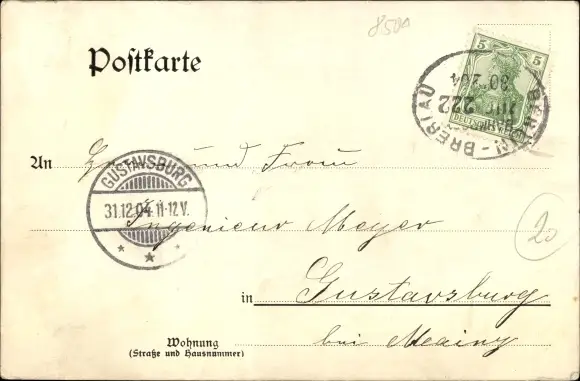 850A
Postkarte
5 5
DEUTSCHES
BRESLAU
BAHNPOST
ZUG 222
30
An Herrn und Frau
GUSTAVSBURG
31.12.04.11-12V.
Ingenieur Meyer
20
in Gustavsburg
Wohnung
(Straße und Hausnummer)
bei Mainz